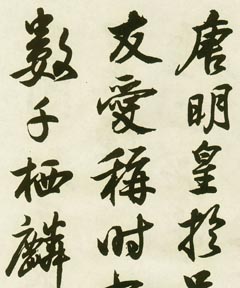 唐明皇於
友愛稱时
數千栖麟